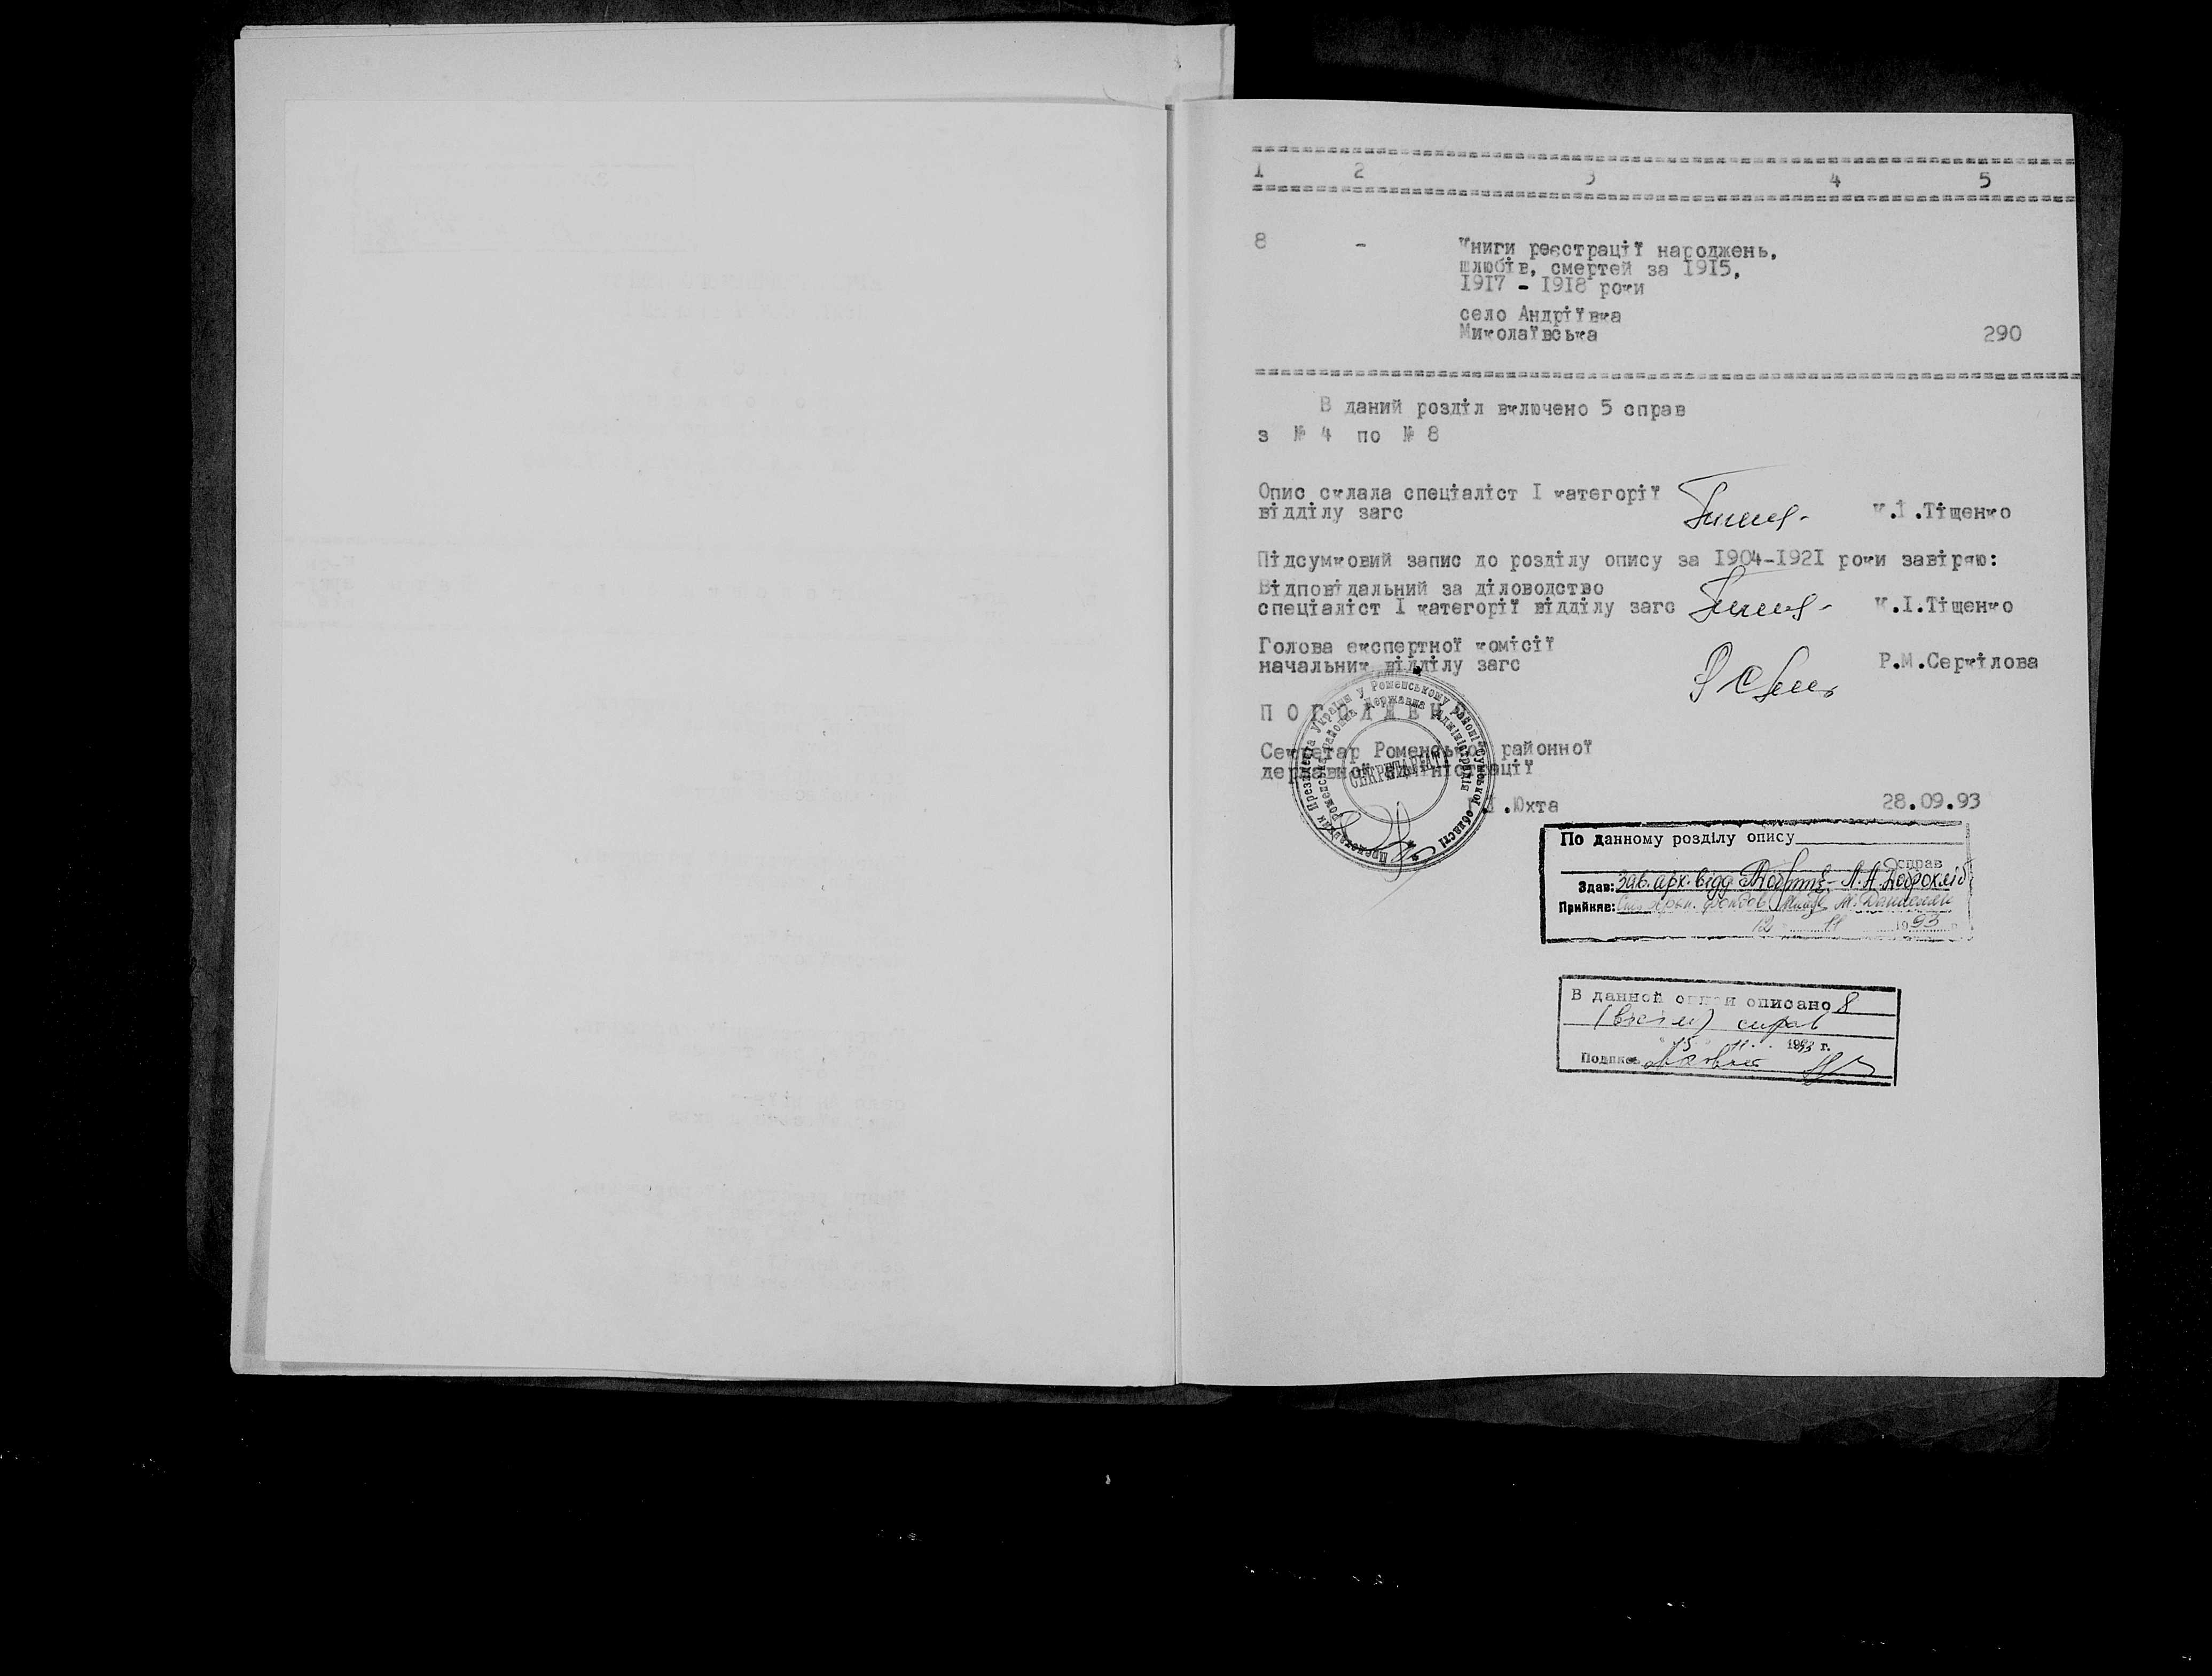 1 2 3 4 5
8 - Книги реєстрації народжень,
шлюбів, смертей за 1915,
1917 - 1918 роки
село Андріївка
Миколаївська 290
В даний розділ включено 5 справ
з № 4 по № 8
Опис склала спеціаліст I категорії
відділу загс К.І.Тіщенко
Підсумковий запис до розділу опису за 1904-1921 роки завіряю:
Відповідальний за діловодство
спеціаліст I категорії відділу загс К.І.Тіщенко
Голова експертної комісії
начальник відділу загс Р.М.Серкілова
ПОГОДЖЕНО
Секретар Роменської районної
державної адміністрації
Юхта 28.09.93
Представник Президента України у Роменському районі Сумської області
Роменська районна державна адміністрація
СЕКРЕТАРІАТ
По данному розділу опису
справ
Здав: Зав. арх. відд Л.А.Доброхліб
Прийняв:
12 11 1993
В данной описи описано 8
(вісім) справ
15 11 1993 г.
Подпись